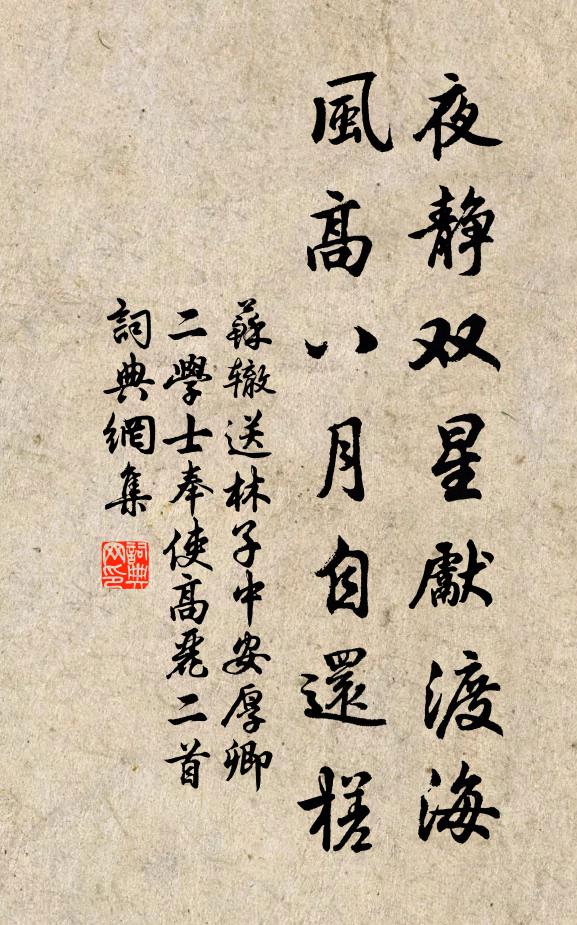 夜静双星獻渡海
風高八月自還槎
蘇辙送林子中安厚卿
二學士奉使高麗二首
詞典網集
詞典
网印